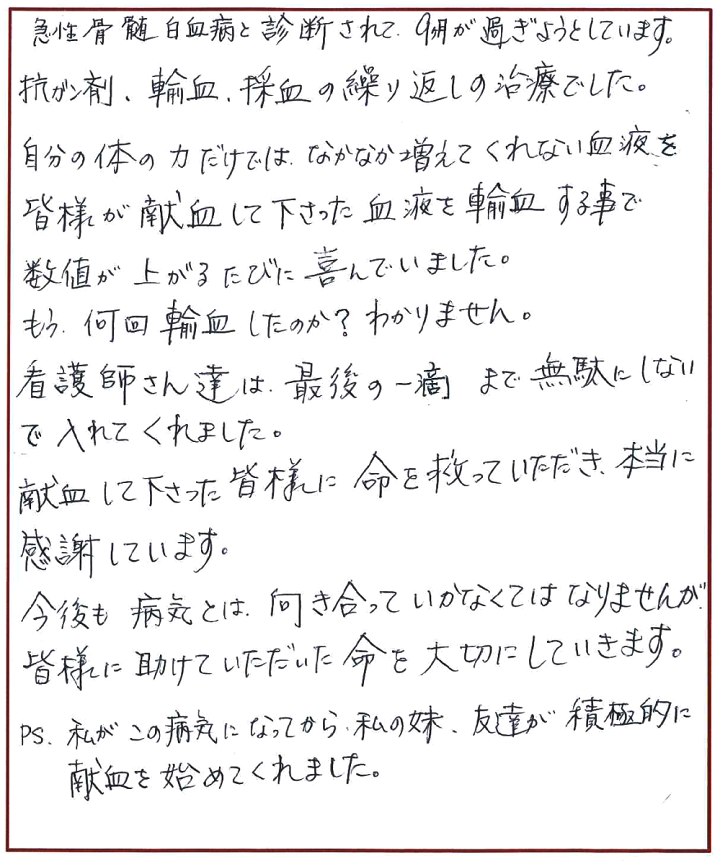 急性骨髄白血病と診断されて、9ヶ月が過ぎようとしています。
抗ガン剤、輸血、採血の繰り返しの治療でした。
自分の体の力だけでは、なかなか増えてくれない血液を
皆様が献血して下さった血液を輸血する事で
数値が上がるたびに喜んでいました。
もう、何回輸血したのか?わかりません。
看護師さん達は、最後の一滴まで無駄にしない
で入れてくれました。
献血して下さった皆様に命を救っていただき、本当に
感謝しています。
今後も病気とは、向き合っていかなくてはなりませんが、
皆様に助けていただいた命を大切にしていきます。
PS. 私がこの病気になってから、私の妹、友達が積極的に
献血を始めてくれました。